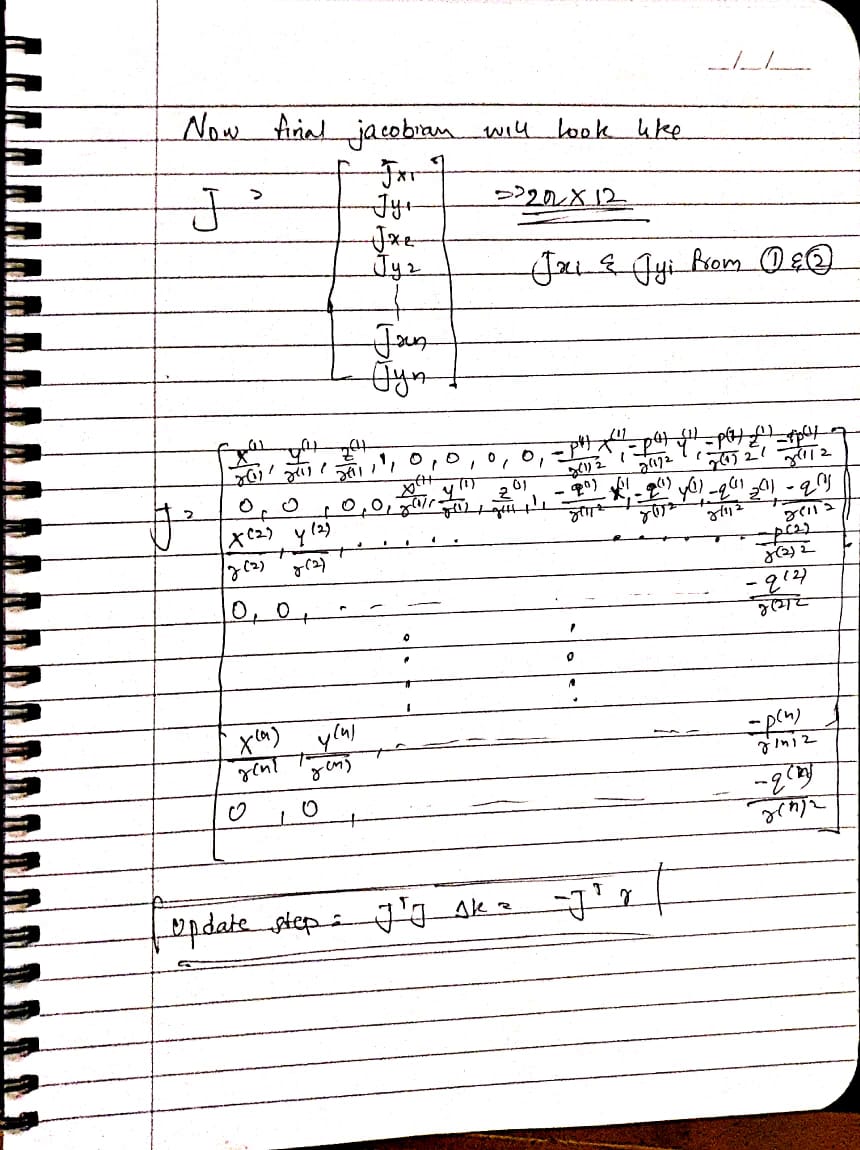 __/__/__
Now final jacobian will look like
J = [ Jx1
Jy1
Jx2
Jy2
|
Jxn
Jyn ] => 2n X 12
Jxi & Jyi from ① & ②
J = [ x^(1)/r^(1), y^(1)/r^(1), z^(1)/r^(1), 1, 0, 0, 0, 0, -p^(1)/r^(1)2 x^(1), -p^(1)/r^(1)2 y^(1), -p^(1)/r^(1)2 z^(1), -p^(1)/r^(1)2
0, 0, 0, 0, x^(1)/r^(1), y^(1)/r^(1), z^(1)/r^(1), 1, -q^(1)/r^(1)2 x^(1), -q^(1)/r^(1)2 y^(1), -q^(1)/r^(1)2 z^(1), -q^(1)/r^(1)2
x^(2)/r^(2), y^(2)/r^(2), . . . . . . . . . . . . -p^(2)/r^(2)2
0, 0, - - — — -q^(2)/r^(2)2
x^(n)/r^(n), y^(n)/r^(n), - — — — -p^(n)/r^(n)2
0, 0, — — — -q^(n)/r^(n)2 ]
Update step = J^T J Δk = -J^T r